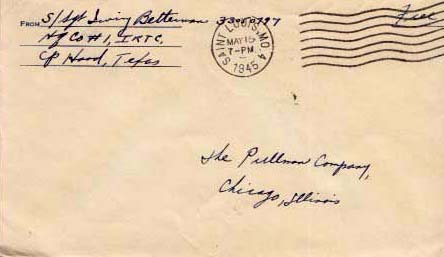 FROM S/Sgt Irving Betterman
Hq Co #1, IRTC,
Cp Hood, Texas
Free
SAINT LOUIS, MO. 4
MAY 15
7-PM
1945
The Pullman Company,
Chicago, Illinois